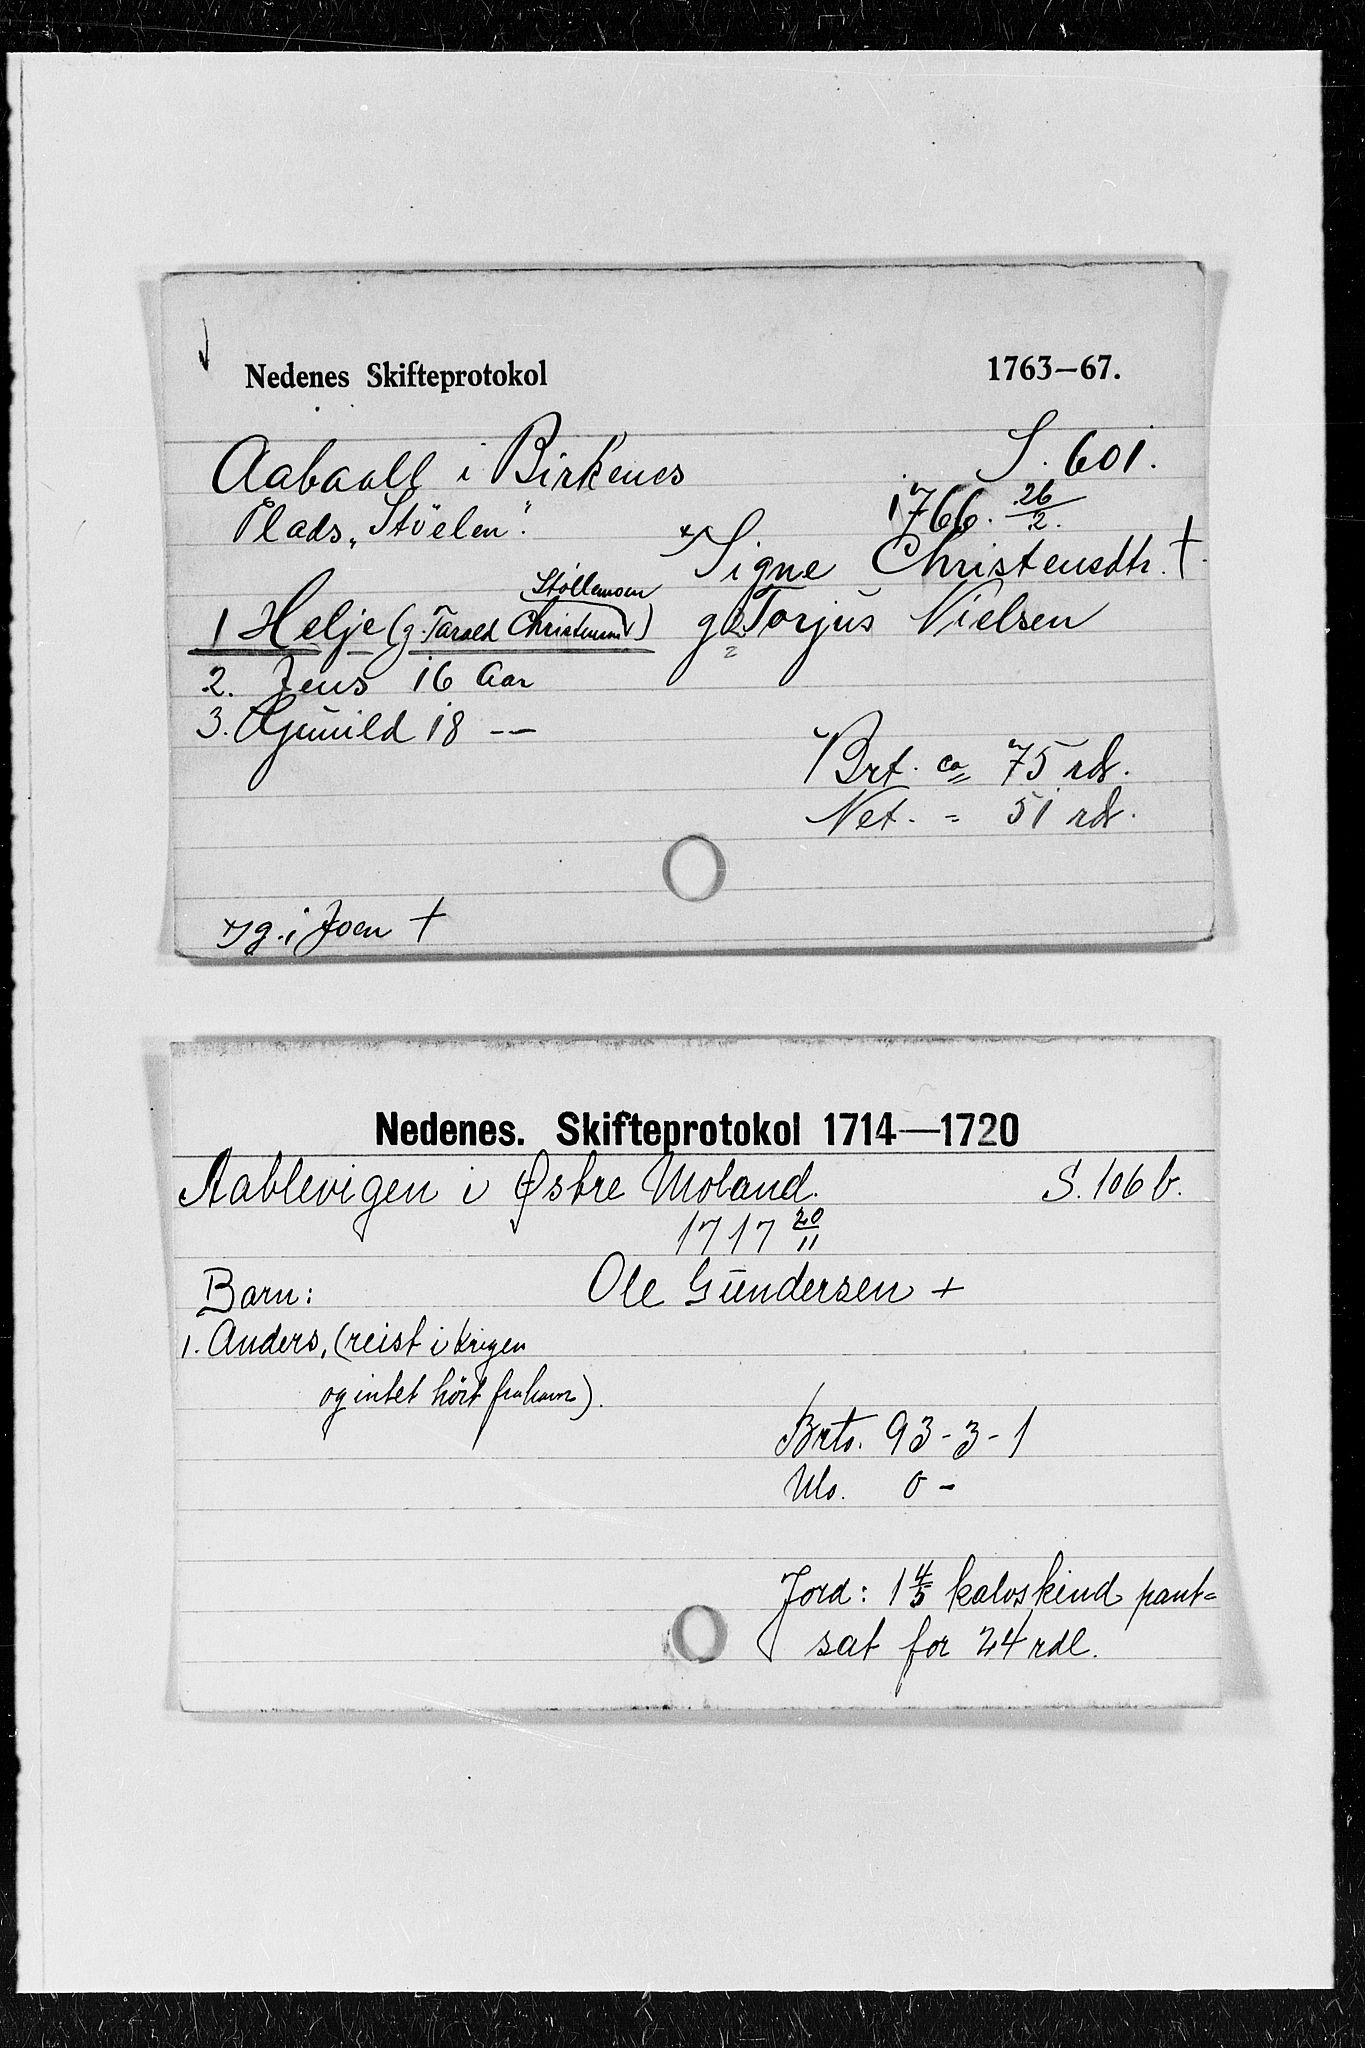 Nedenes Skifteprotokol 1763—67.
Aabaall i Birkenes S. 601.
Plads „Stöelen". 1766. 26/2.
* Signe Christensdtr. †.
Stöllemoen
1 Helje (g. Tarald Christensen) g 2 Torjus Nielsen
2. Jens 16 Aar
3. Gunild 18 --
Brt. ca 75 rdr.
Net. = 51 rdr.
* g. i Joen †
Nedenes. Skifteprotokol 1714—1720
Aablevigen i Østre Moland. S. 106 b.
1717 20/11
Barn: Ole Gundersen +
1. Anders, (reist i krigen
og intet hört fra ham).
Brto. 93-3-1
Nto. 0 -
Jord: 1 4/5 kalvskind pant=
sat for 24 rdl.